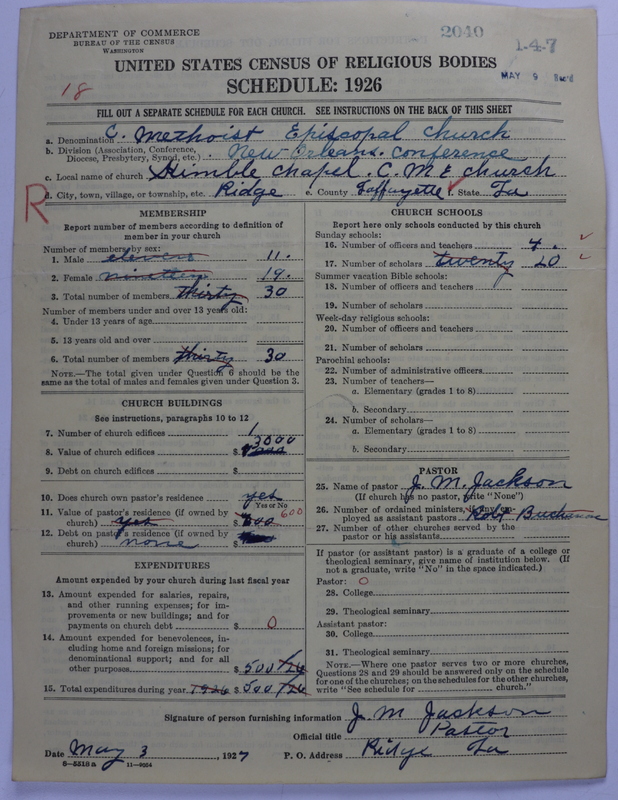 DEPARTMENT OF COMMERCE
BUREAU OF THE CENSUS
WASHINGTON
2040
1-4-7
MAY 9 Rec'd
UNITED STATES CENSUS OF RELIGIOUS BODIES
SCHEDULE: 1926
18
FILL OUT A SEPARATE SCHEDULE FOR EACH CHURCH. SEE INSTRUCTIONS ON THE BACK OF THIS SHEET
a. Denomination C. Methoist Episcopal church
b. Division (Association, Conference, Diocese, Presbytery, Synod, etc.) New Orleans. conference
c. Local name of church chapel. C. M E church
d. City, town, village, or township, etc. Ridge e. County Laffayette f. State La
R
MEMBERSHIP
Report number of members according to definition of
member in your church
Number of members by sex:
1. Male eleven 11.
2. Female ninetteen 19.
3. Total number of members thirty 30
Number of members under and over 13 years old:
4. Under 13 years of age
5. 13 years old and over
6. Total number of members thirty 30
NOTE.—The total given under Question 6 should be the
same as the total of males and females given under Question 3.
CHURCH BUILDINGS
See instructions, paragraphs 10 to 12
7. Number of church edifices 1
8. Value of church edifices $ 3000
9. Debt on church edifices $
10. Does church own pastor's residence yes
Yes or No
11. Value of pastor's residence (if owned by
church) yes $ 600 600
12. Debt on pastor's residence (if owned by
church) none $
EXPENDITURES
Amount expended by your church during last fiscal year
13. Amount expended for salaries, repairs,
and other running expenses; for im-
provements or new buildings; and for
payments on church debt $ 0
14. Amount expended for benevolences, in-
cluding home and foreign missions; for
denominational support; and for all
other purposes $ 500/26
15. Total expenditures during year 1926 $ 500/26
CHURCH SCHOOLS
Report here only schools conducted by this church
Sunday schools:
16. Number of officers and teachers 4.
17. Number of scholars twenty 20
Summer vacation Bible schools:
18. Number of officers and teachers
19. Number of scholars
Week-day religious schools:
20. Number of officers and teachers
21. Number of scholars
Parochial schools:
22. Number of administrative officers
23. Number of teachers—
a. Elementary (grades 1 to 8)
b. Secondary
24. Number of scholars—
a. Elementary (grades 1 to 8)
b. Secondary
PASTOR
25. Name of pastor J. M. Jackson
(If church has no pastor, write "None")
26. Number of ordained ministers, if any, em-
ployed as assistant pastors Robt Buchanan
27. Number of other churches served by the
pastor or his assistants
If pastor (or assistant pastor) is a graduate of a college or
theological seminary, give name of institution below. (If
not a graduate, write "No" in the space indicated.)
Pastor: 0
28. College
29. Theological seminary
Assistant pastor:
30. College
31. Theological seminary
NOTE.—Where one pastor serves two or more churches,
Questions 28 and 29 should be answered only on the schedule
for one of the churches; on the schedules for the other churches,
write "See schedule for church."
Signature of person furnishing information J. M. Jackson
Official title Pastor
Date May 3, 1927 P. O. Address Ridge La
8-5518 a 11-9024